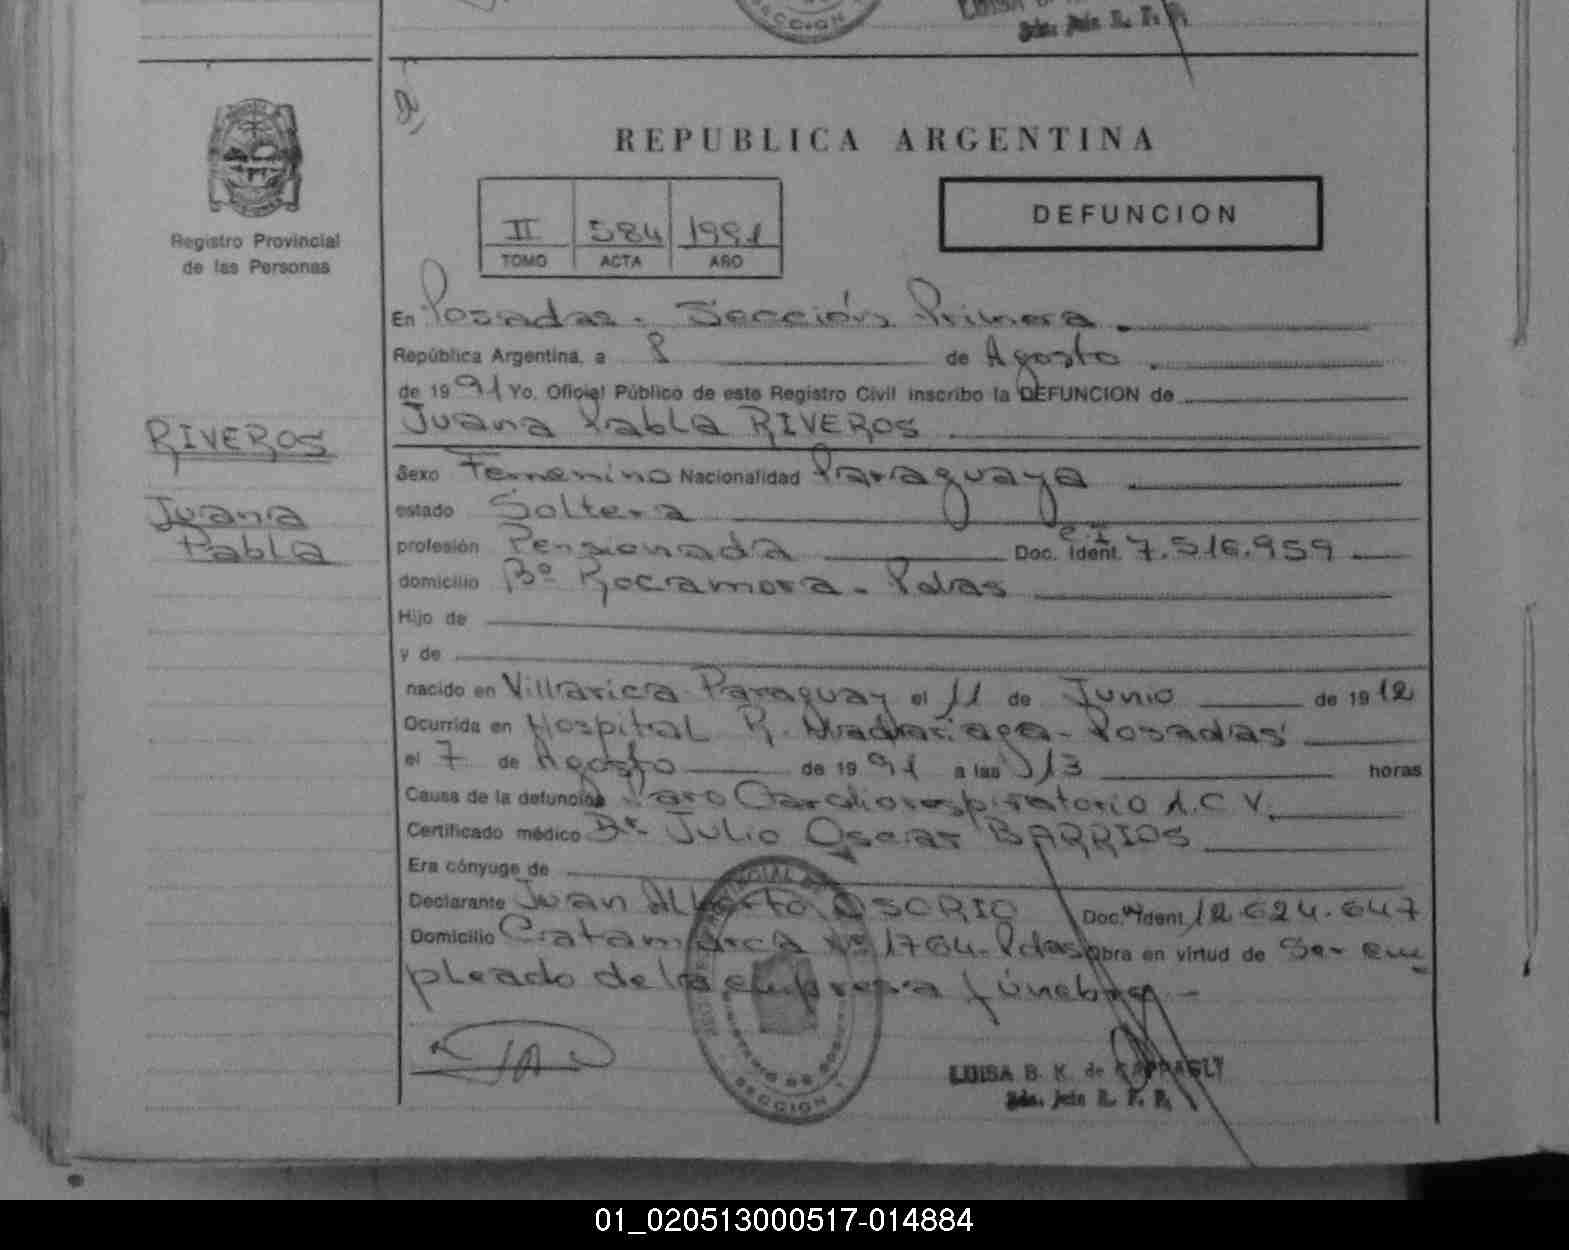 REPUBLICA ARGENTINA
Registro Provincial
de las Personas
II 584 1991
TOMO ACTA AÑO
DEFUNCION
En Posadas. Sección Primera.
República Argentina, a 8 de Agosto
de 1991 Yo, Oficial Público de este Registro Civil inscribo la DEFUNCION de
Juana Pabla RIVEROS
RIVEROS
Juana
Pabla
Sexo Femenino Nacionalidad Paraguaya
estado Soltera
profesión Pensionada Doc. Ident. C.I 7.516.959
domicilio Bº Rocamora - Pdas
Hijo de
y de
nacido en Villarica - Paraguay el 11 de Junio de 1912
Ocurrida en Hospital R. Madariaga - Posadas
el 7 de Agosto de 1991 a las 13 horas
Causa de la defunción Paro Cardiorespiratorio A.C.V.
Certificado médico Dr. Julio Oscar BARRIOS
Era cónyuge de
Declarante Juan Alberto OSORIO Doc. Ident. 12.624.647
Domicilio Catamarca Nº 1764 - Pdas Obra en virtud de Ser em
pleado de la empresa fúnebre -
LUISA B. K. de
SECCION 1
01_020513000517-014884